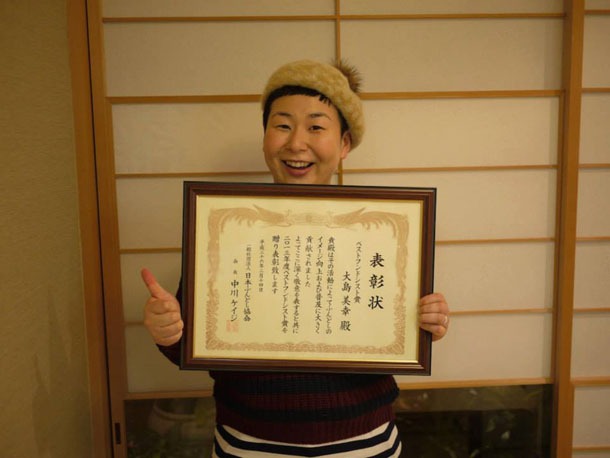 表彰状
ベストフンドシスト賞
大島美幸 殿
貴殿はその活動によってふんどしの
イメージ向上および普及に大きく
貢献されました
よってここに深く敬意を表すると共に
二〇一三年度ベストフンドシスト賞を
贈り表彰致します
平成二十六年二月十四日
一般社団法人 日本ふんどし協会
会長 中川ケイジ